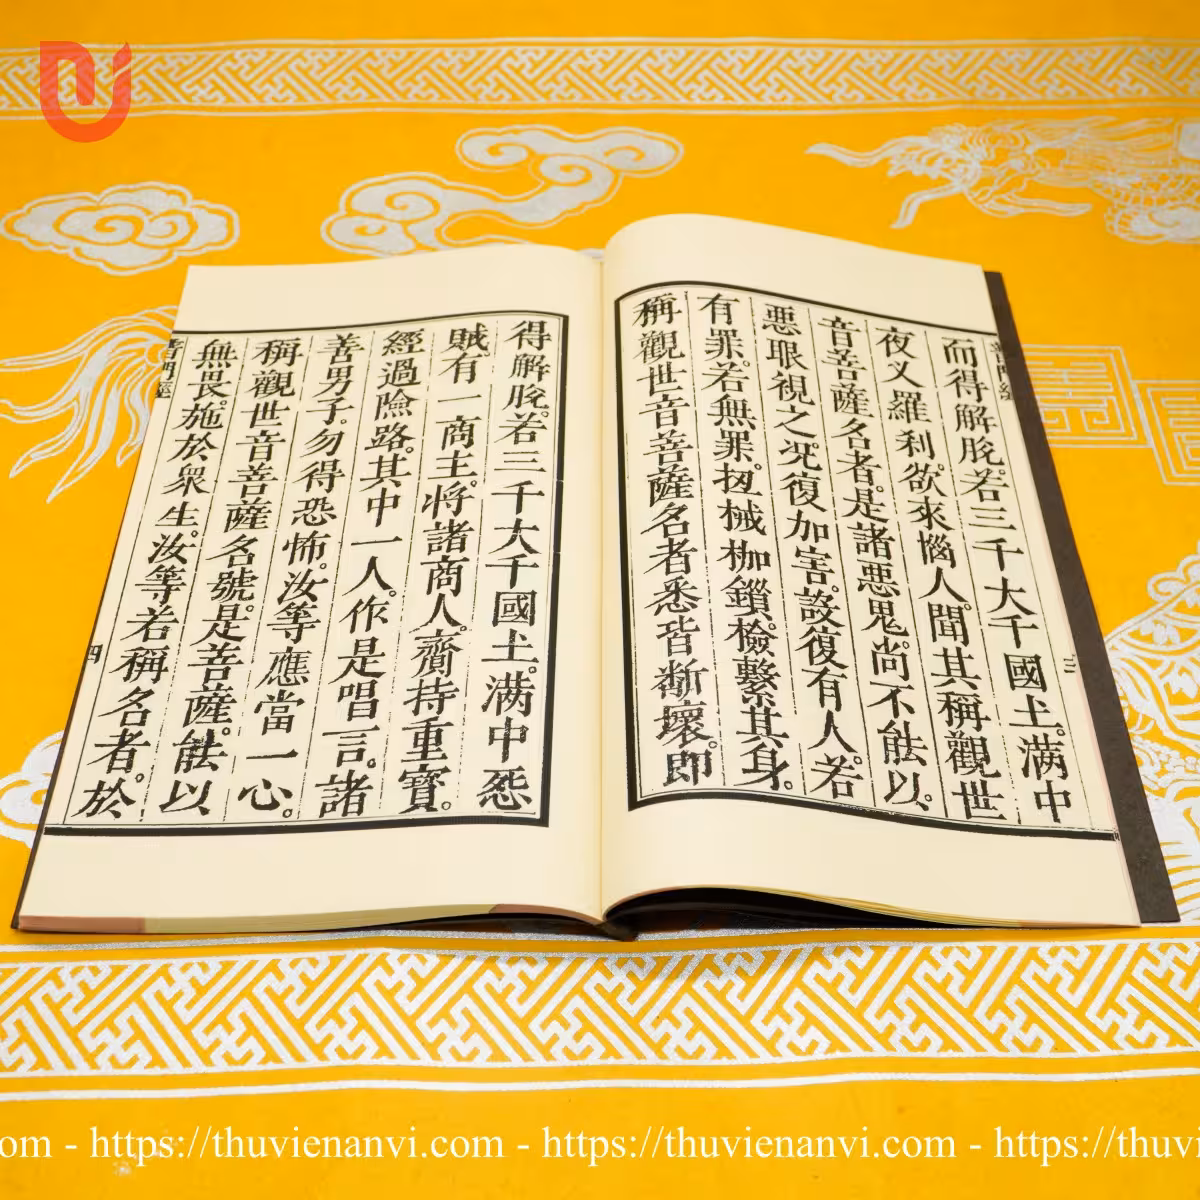 而得解脫。若三千大千國土。滿中
夜叉羅刹。欲來惱人。聞其稱觀世
音菩薩名者。是諸惡鬼。尚不能以
惡眼視之。況復加害。設復有人。若
有罪。若無罪。杻械枷鎖。檢繫其身。
稱觀世音菩薩名者。悉皆斷壞。即
得解脫。若三千大千國土。滿中怨
賊。有一商主。將諸商人。齎持重寶。
經過險路。其中一人。作是唱言。諸
善男子。勿得恐怖。汝等應當一心。
稱觀世音菩薩名號。是菩薩。能以
無畏。施於眾生。汝等若稱名者。於
普門經
四
https://thuvienanvi.com - https://thuvienanvi.com